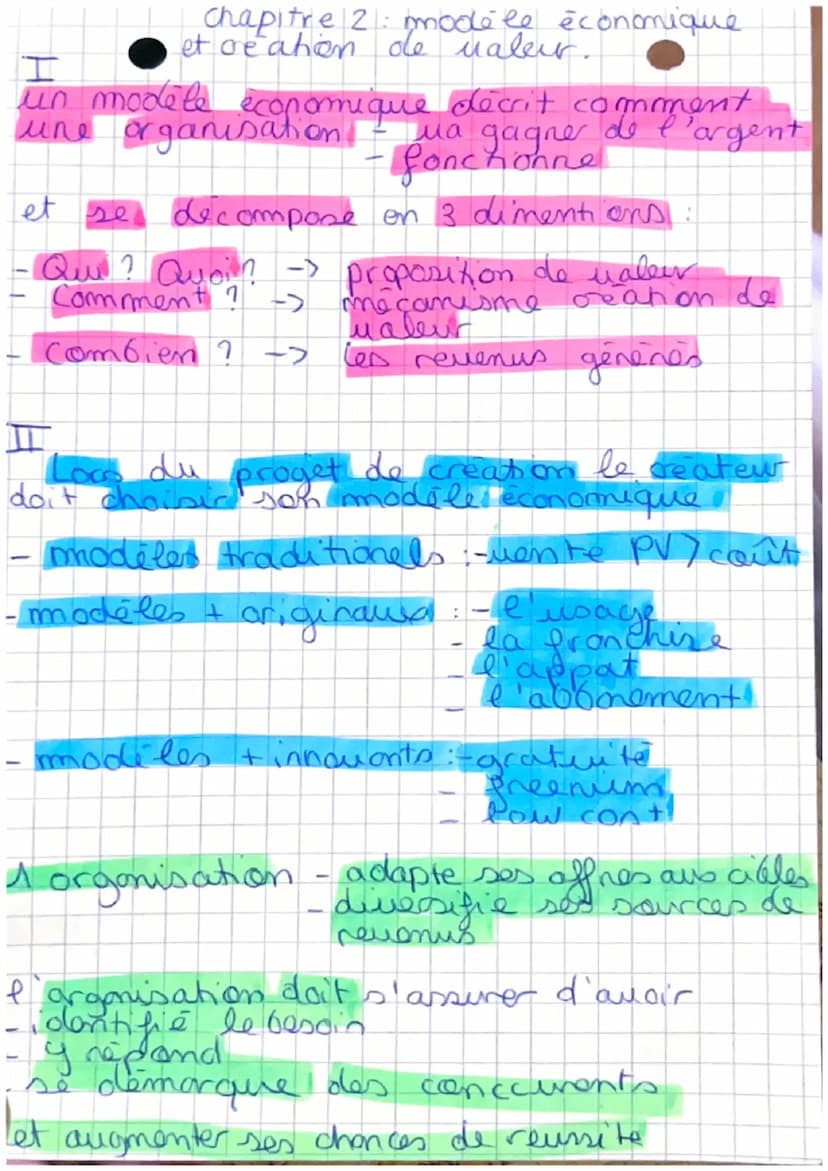 chapitre 2 : modèle économique
et création de valeur.
I
un modèle économique décrit comment
une organisation - va gagner de l'argent
- fonctionne
et se décompose en 3 dimentions :
- Qui ? Quoi ? -> proposition de valeur
- Comment ? -> mécanisme création de
valeur
- Combien ? -> les revenus générés
II
Lors du projet de création le créateur
doit choisir son modèle économique
- modèles traditionels : - vente PV > coût
- modèles + originaux : - l'usage
- la franchise
- l'appat
- l'abbonement
- modèles + innovants : - gratuité
- freenium
- low cost
1 organisation - adapte ses offres aux cibles
- diversifie ses sources de
revenus
l'organisation doit s'assurer d'avoir
- identifié le besoin
- y répond
- se démarque des conccurents
et augmenter ses chances de reussite